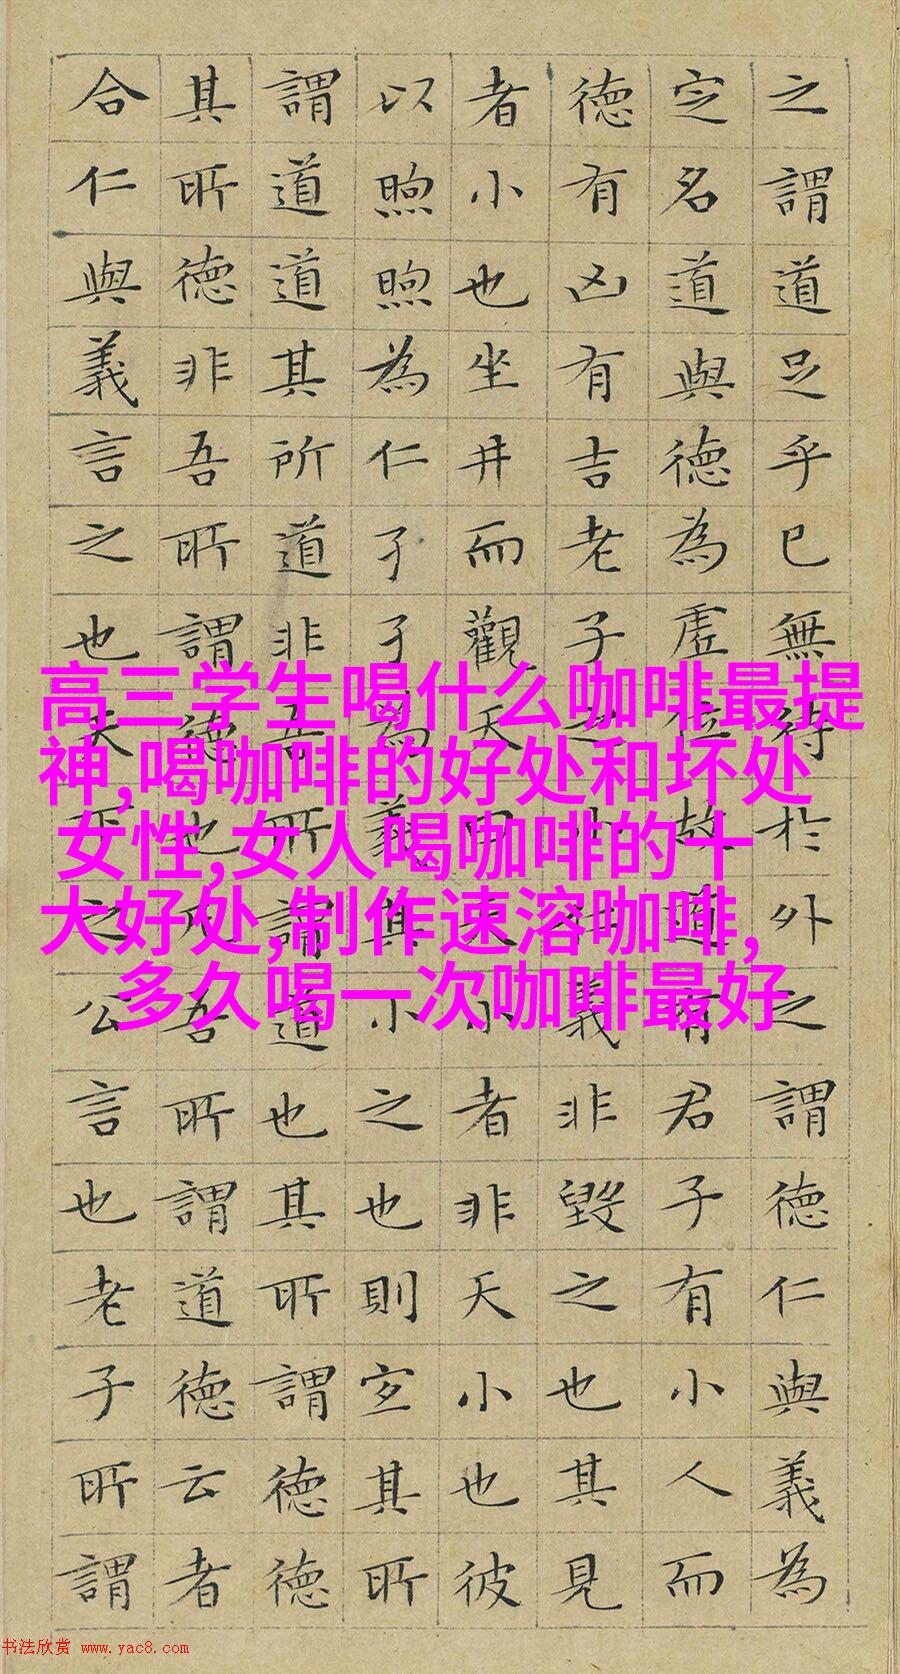 之謂道足乎已無待於外之謂德仁與義為
定名道與德為虛位故道有君子有小人而
德有凶有吉老子之小仁義非毀之也其見
者小也坐井而觀天曰天小者非天小也彼
以煦煦為仁孑孑為義其小之也則宜其所
謂道道其所道非吾所謂道也其所謂德德
其所德非吾所謂德也凡吾所謂道德云者
合仁與義言之也天下之公言也老子所謂
高三学生喝什么咖啡最提
神,喝咖啡的好处和坏处
女性,女人喝咖啡的十
大好处,制作速溶咖啡,
多久喝一次咖啡最好
书法欣赏 www.yac8.com